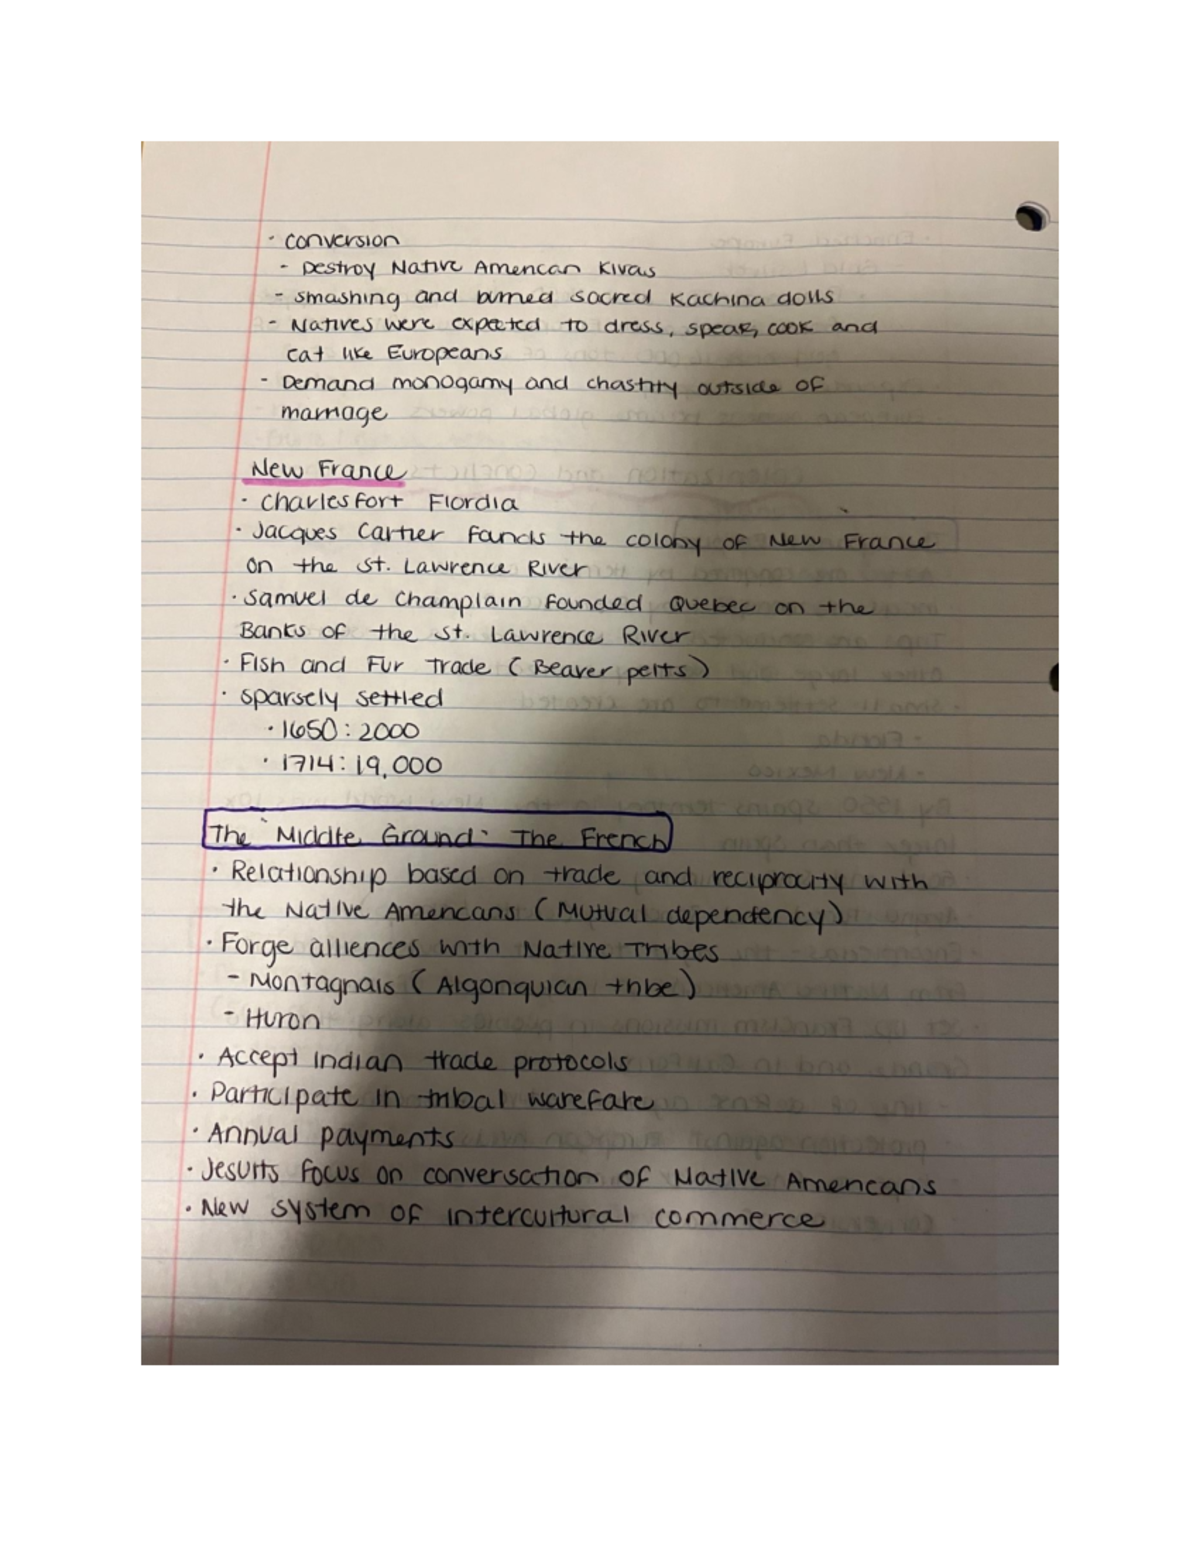 · conversion
- Destroy Native American Kivas
- smashing and burned sacred Kachina dolls
- Natives were expected to dress, speak, cook and
eat like Europeans
- Demand monogamy and chastity outside of
marriage
New France
· Charlesfort Flordia
· Jacques Cartier founds the colony of New France
on the St. Lawrence River
· Samuel de Champlain founded Quebec on the
Banks of the St. Lawrence River
· Fish and Fur trade (Beaver pelts)
· sparsely settled
· 1650: 2000
· 1714: 19,000
The "Middle Ground" The French
· Relationship based on trade and reciprocity with
the Native Americans (Mutual dependency)
· Forge alliences with Native Tribes
- Montagnais (Algonquian tribe)
- Huron
· Accept Indian trade protocols
· Participate in tribal warefare
· Annual payments
· Jesuits focus on conversation of Native Americans
· New system of intercultural commerce